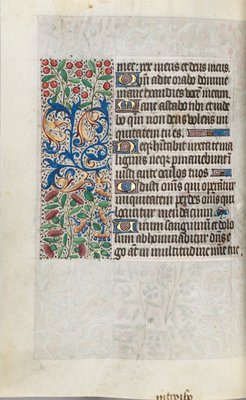 mee: rex meus et deus meus.
Qm̄ ad te orabo domine
mane exaudies vocē meam
Mane astabo tibi et vide
bo qm̄ non deus volens in
iquitatem tu es.
Neqȝ habitabit iuxta te ma
lignus neqȝ permanebunt in
iusti ante oculos tuos
Odisti om̄s qui operātur
iniquitatem perdes om̄s qui
locuntur mendacium
Virum sanguinum et dolo
sum abhominabitur dn̄s e
go aūt in multitudine mīe tue
introibo